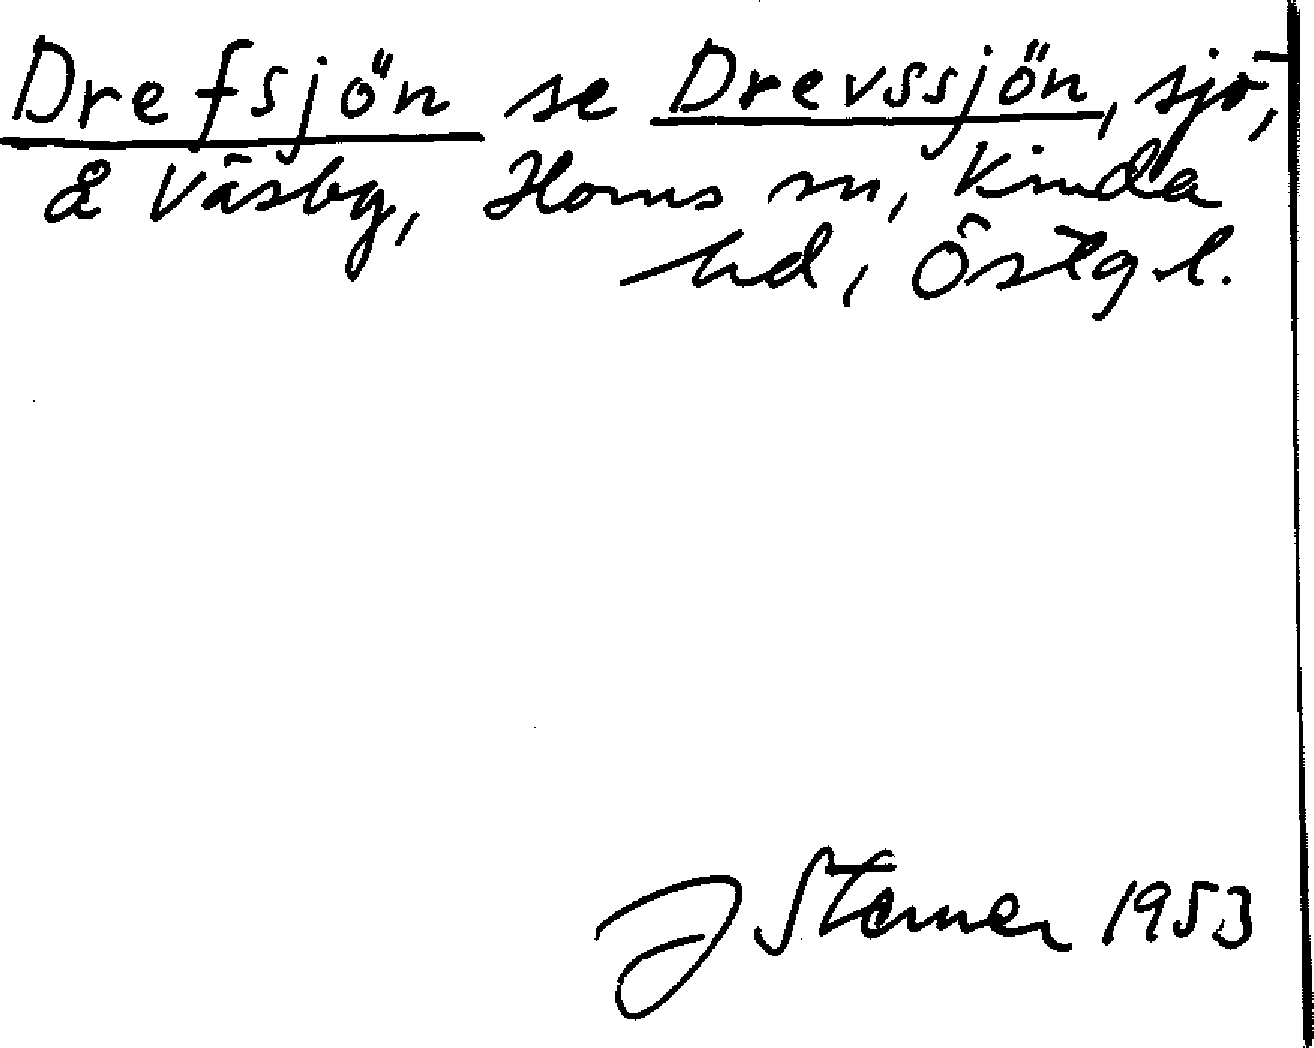 Drefsjön se Drevssjön, sjö,
å Väsby, Horns sn, Kinda
hd, Östgl.
J Sterner 1953